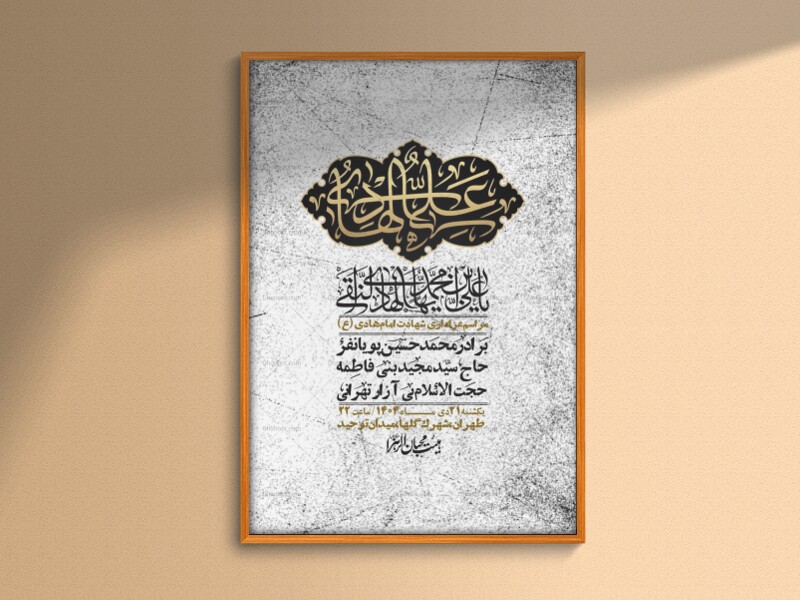 علی الهادی
یا علی بن محمد ایها الهادی النقی
مراسم عزاداری شهادت امام هادی (ع)
برادر محمد حسین پویانفر
حاج سید مجید بنی فاطمه
حجت الائلام بی آزار تهرانی
یکشنبه ۲۱ دی مـــاه ۱۴۰۴ / ساعت ۲۲
طهران، شهرک گلها، میدان توحید
هیئت محبان الزهرا